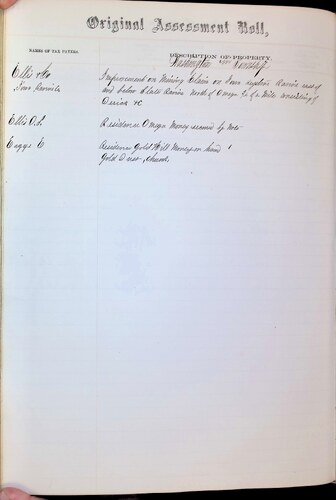 Original Assessment Roll,
NAMES OF TAX PAYERS.
DESCRIPTION OF PROPERTY.
Washington Township
Ellis & Co
Improvement on Mining Claim on Iowa Ravine east of
and below Ravine North of Omega of a Mile consisting of
Derick &c
Ellis O. L.
Residence Omega Money secured by Note
E
Residence Gold Hill Money on hand
Gold Dust